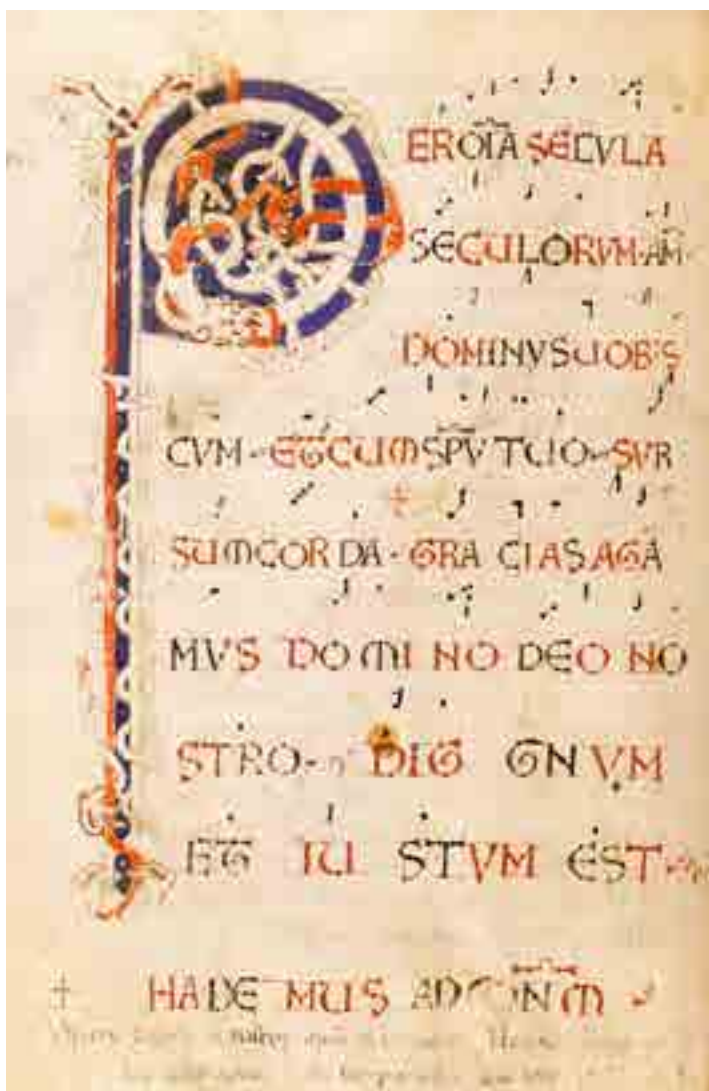 PER OĪA SECULA
SECULORVM·AM̄·
DOMINVS UOBIS
CVM·ET CUM SPV̄ TUO·SVR
SUM CORDA·GRACIAS AGA
MVS DOMINO DEO NO
STRO· DIG GNVM
ET IU STVM EST·
HABE MUS AD